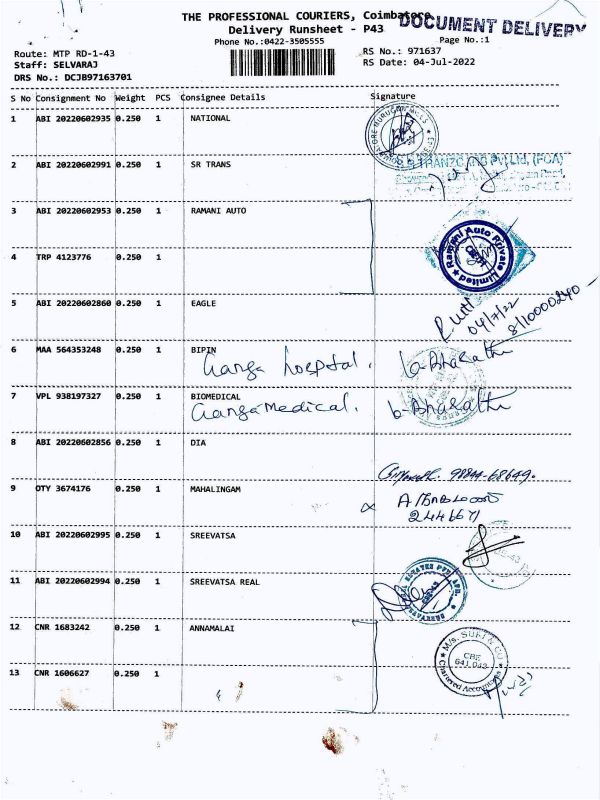 THE PROFESSIONAL COURIERS, Coimbatore
DOCUMENT DELIVERY
Delivery Runsheet - P43
Phone No.:0422-3505555
Page No.:1
Route: MTP RD-1-43
RS No.: 971637
Staff: SELVARAJ
RS Date: 04-Jul-2022
DRS No.: DCJB97163701
S No Consignment No Weight PCS Consignee Details Signature
1 ABI 20220602935 0.250 1 NATIONAL
2 ABI 20220602991 0.250 1 SR TRANS
3 ABI 20220602953 0.250 1 RAMANI AUTO
Ramani Auto Private Limited
4 TRP 4123776 0.250 1
5 ABI 20220602860 0.250 1 EAGLE
04/7/22
8/10000240
6 MAA 564353248 0.250 1 BIPIN
Ganga hospital. G-Bharathi
7 VPL 938197327 0.250 1 BIOMEDICAL
Ganga Medical. G-Bharathi
8 ABI 20220602856 0.250 1 DIA
98844-68649.
9 OTY 3674176 0.250 1 MAHALINGAM
2446671
10 ABI 20220602995 0.250 1 SREEVATSA
11 ABI 20220602994 0.250 1 SREEVATSA REAL
12 CNR 1683242 0.250 1 ANNAMALAI
M/s. SURI & CO
CBE
641 043
Chartered Accountants
13 CNR 1606627 0.250 1